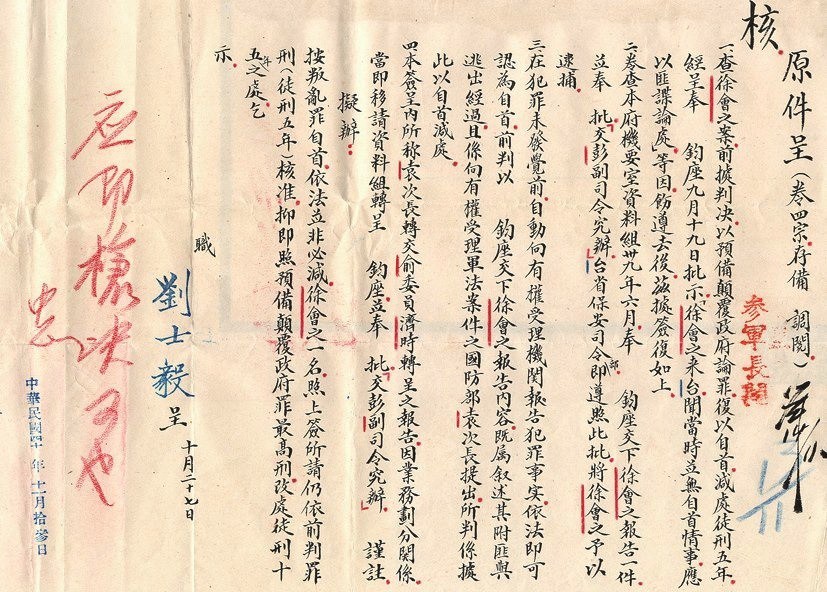 核
原件呈(卷四宗存備 調閱)
參軍長閱
一、查徐會之案前據判決以預備顛覆政府論罪復以自首減處徒刑五年
經呈奉 鈞座九月十九日批示「徐會之來台聞當時並無自首情事應
以匪諜論處」等因飭遵去後茲據簽復如上
二、卷查本府機要室資料組卅九年六月奉 鈞座交下徐會之報告一件
並奉 批「交彭副司令究辦」台省保安司令部即遵照此批將徐會之予以
逮捕
三、在犯罪未發覺前自動向有權受理機關報告犯罪事實依法即可
認為自首前判以 鈞座交下徐會之報告內容既屬叙述其附匪與
逃出經過且係向有權受理軍法案件之國防部袁次長提出所判係據
此以自首減處
四、本簽呈內所称袁次長轉交俞委員濟時轉呈之報告因業務劃分關係
當即移請資料組轉呈 鈞座並奉 批「交彭副司令究辦」 謹註
擬辦:
按叛亂罪自首依法並非必減徐會之一名照上簽所請仍依前判罪
刑(徒刑五年)核准抑即照預備顛覆政府罪最高刑改處徒刑十
五年之處乞
示
職
劉士毅 呈 十月二十七日
應即槍決可也
中華民國 年十一月拾參日